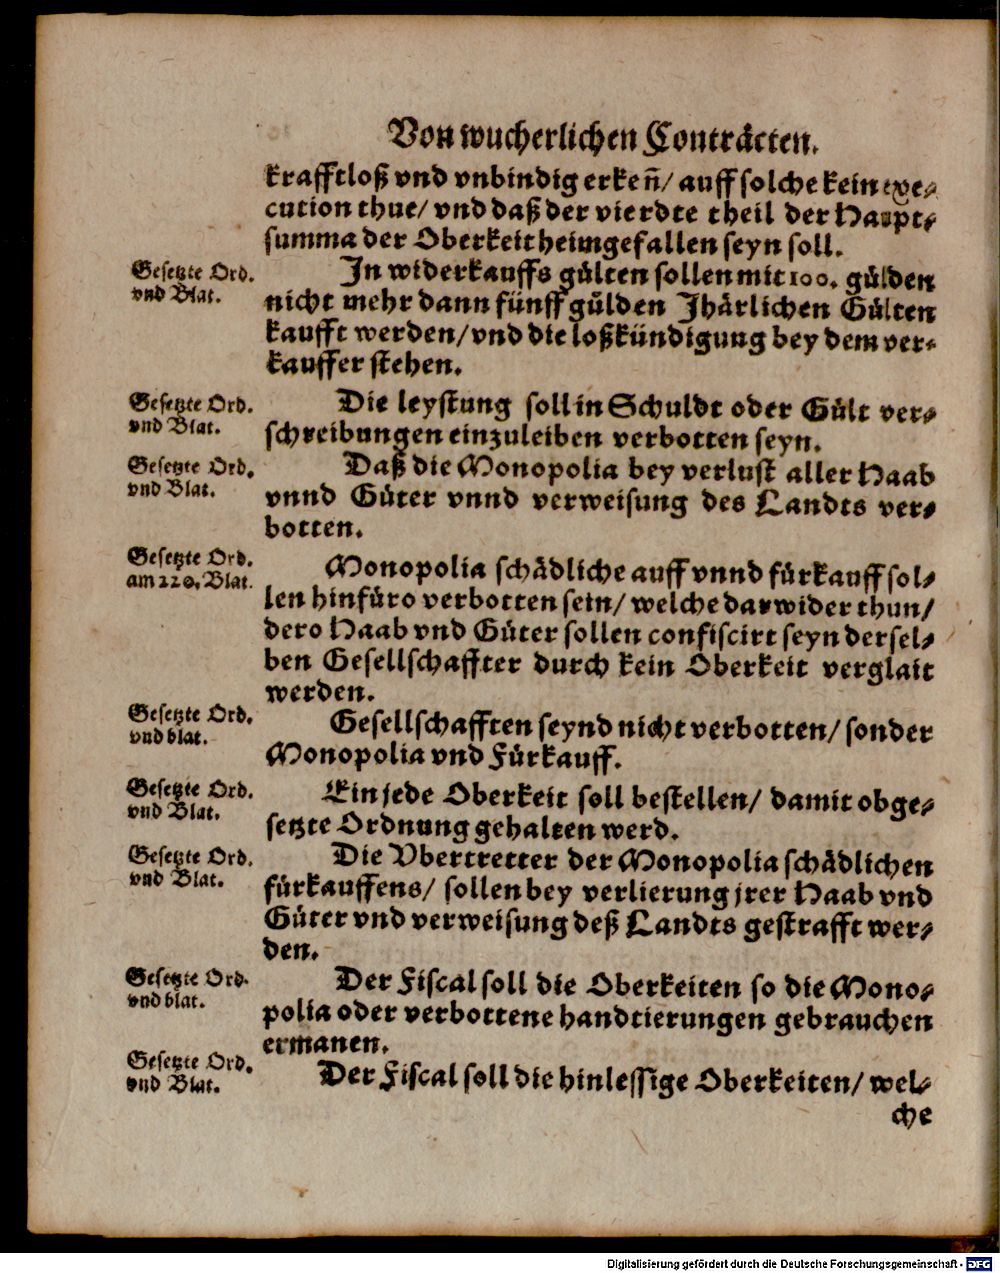 Von wucherlichen Conträcten.
krafftloß vnd vnbindig erkeñ/ auff solche kein exe-
cution thue/ vnd daß der vierdte theil der Haupt-
summa der Oberkeit heimgefallen seyn soll.
Gesetzte Ord.
vnd Blat.
In widerkauffs gülten sollen mit 100. gülden
nicht mehr dann fünff gülden Jhärlichen Gülten
kaufft werden/ vnd die loßkündigung bey dem ver-
kauffer stehen.
Gesetzte Ord.
vnd Blat.
Die leystung soll in Schuldt oder Gült ver-
schreibungen einzuleiben verbotten seyn.
Gesetzte Ord.
vnd Blat.
Daß die Monopolia bey verlust aller Haab
vnnd Güter vnnd verweisung des Landts ver-
botten.
Gesetzte Ord.
am 220. Blat.
Monopolia schädliche auff vnnd fürkauff sol-
len hinfüro verbotten sein/ welche darwider thun/
dero Haab vnd Güter sollen confiscirt seyn dersel-
ben Gesellschaffter durch kein Oberkeit verglait
werden.
Gesetzte Ord.
vnd blat.
Gesellschafften seynd nicht verbotten/ sonder
Monopolia vnd Fürkauff.
Gesetzte Ord.
vnd Blat.
Ein jede Oberkeit soll bestellen/ damit obge-
setzte Ordnung gehalten werd.
Gesetzte Ord.
vnd Blat.
Die Vbertretter der Monopolia schädlichen
fürkauffens/ sollen bey verlierung jrer Haab vnd
Güter vnd verweisung deß Landts gestrafft wer-
den.
Gesetzte Ord.
vnd blat.
Der Fiscal soll die Oberkeiten so die Mono-
polia oder verbottene handtierungen gebrauchen
ermanen.
Gesetzte Ord.
vnd Blat.
Der Fiscal soll die hinlessige Oberkeiten/ wel-
che
Digitalisierung gefördert durch die Deutsche Forschungsgemeinschaft - DFG